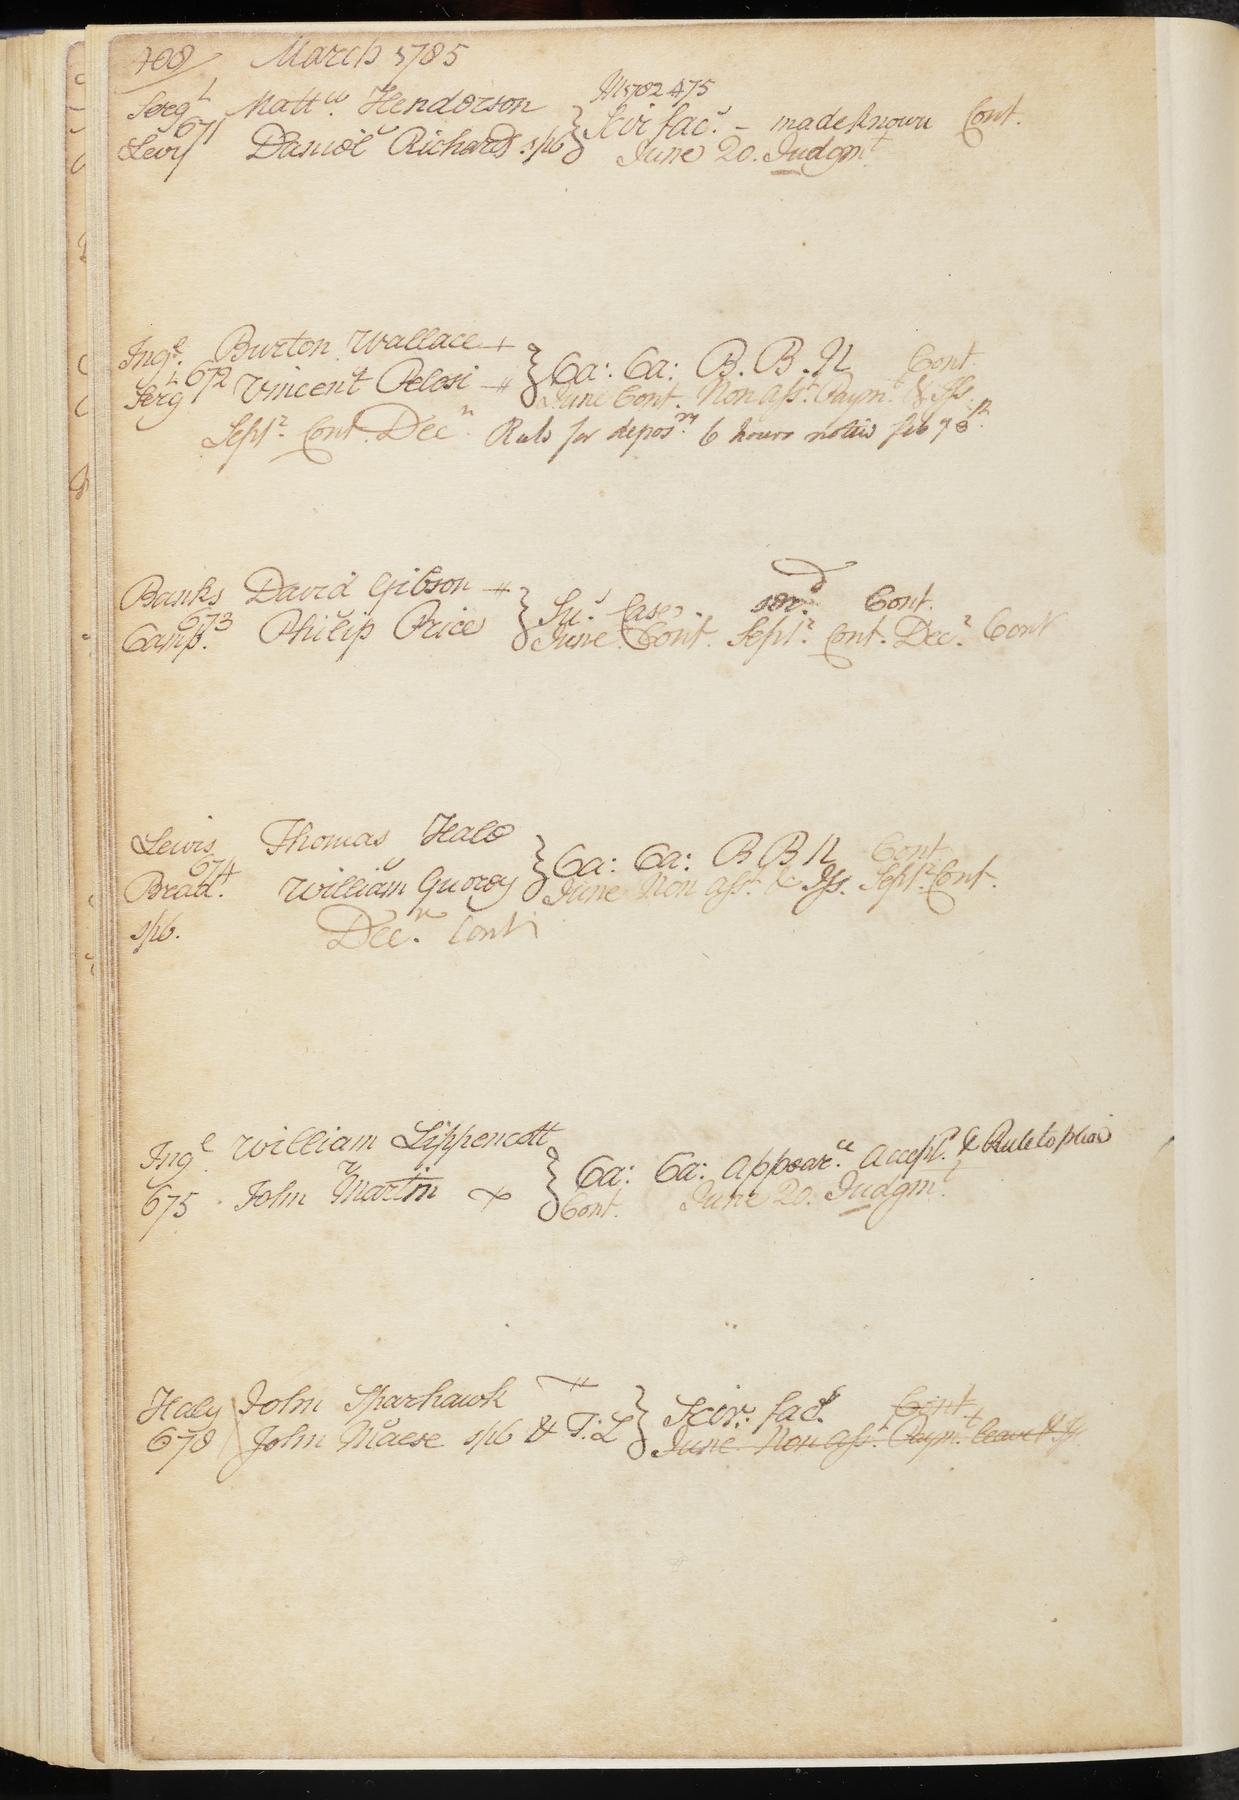 408 March 1785
Serg^t Matt^w. Henderson
671
Levy Daniel Richards spb
Scir fac^s. - made known Cont.
June 20. Judgm^t
Ing^l. Burton Wallace
672
Serg^t Vincent Pelosi
Ca: Ca: B. B. N Cont.
June Cont. Non ass^t. Paym^t. & Iss.
Sept^r. Cont. Dec^r. Rule for depos^ns 6 hours notice feb
Banks David Gibson
673
Camp. Philip Price
Su^s Case. ser^d Cont.
June Cont. Sept^r. Cont. Dec^r. Cont
Lewis Thomas Hale
674
Brad^d. William Gurney
spb.
Ca: Ca: B B N Cont
June Non ass^t &c Iss. Sept^r. Cont.
Dec^r. Cont
Ing^l William Lippencott
675 John Martin
Ca: Ca: Appear^ce accept^d. & Rule to plead
Cont. June 20. Judgm^t.
Haly John Sparhawk
678 John Maese spb & T: L
Scir. fac^s. Cont
June. Non ass^t. Paym^t leave & Iss